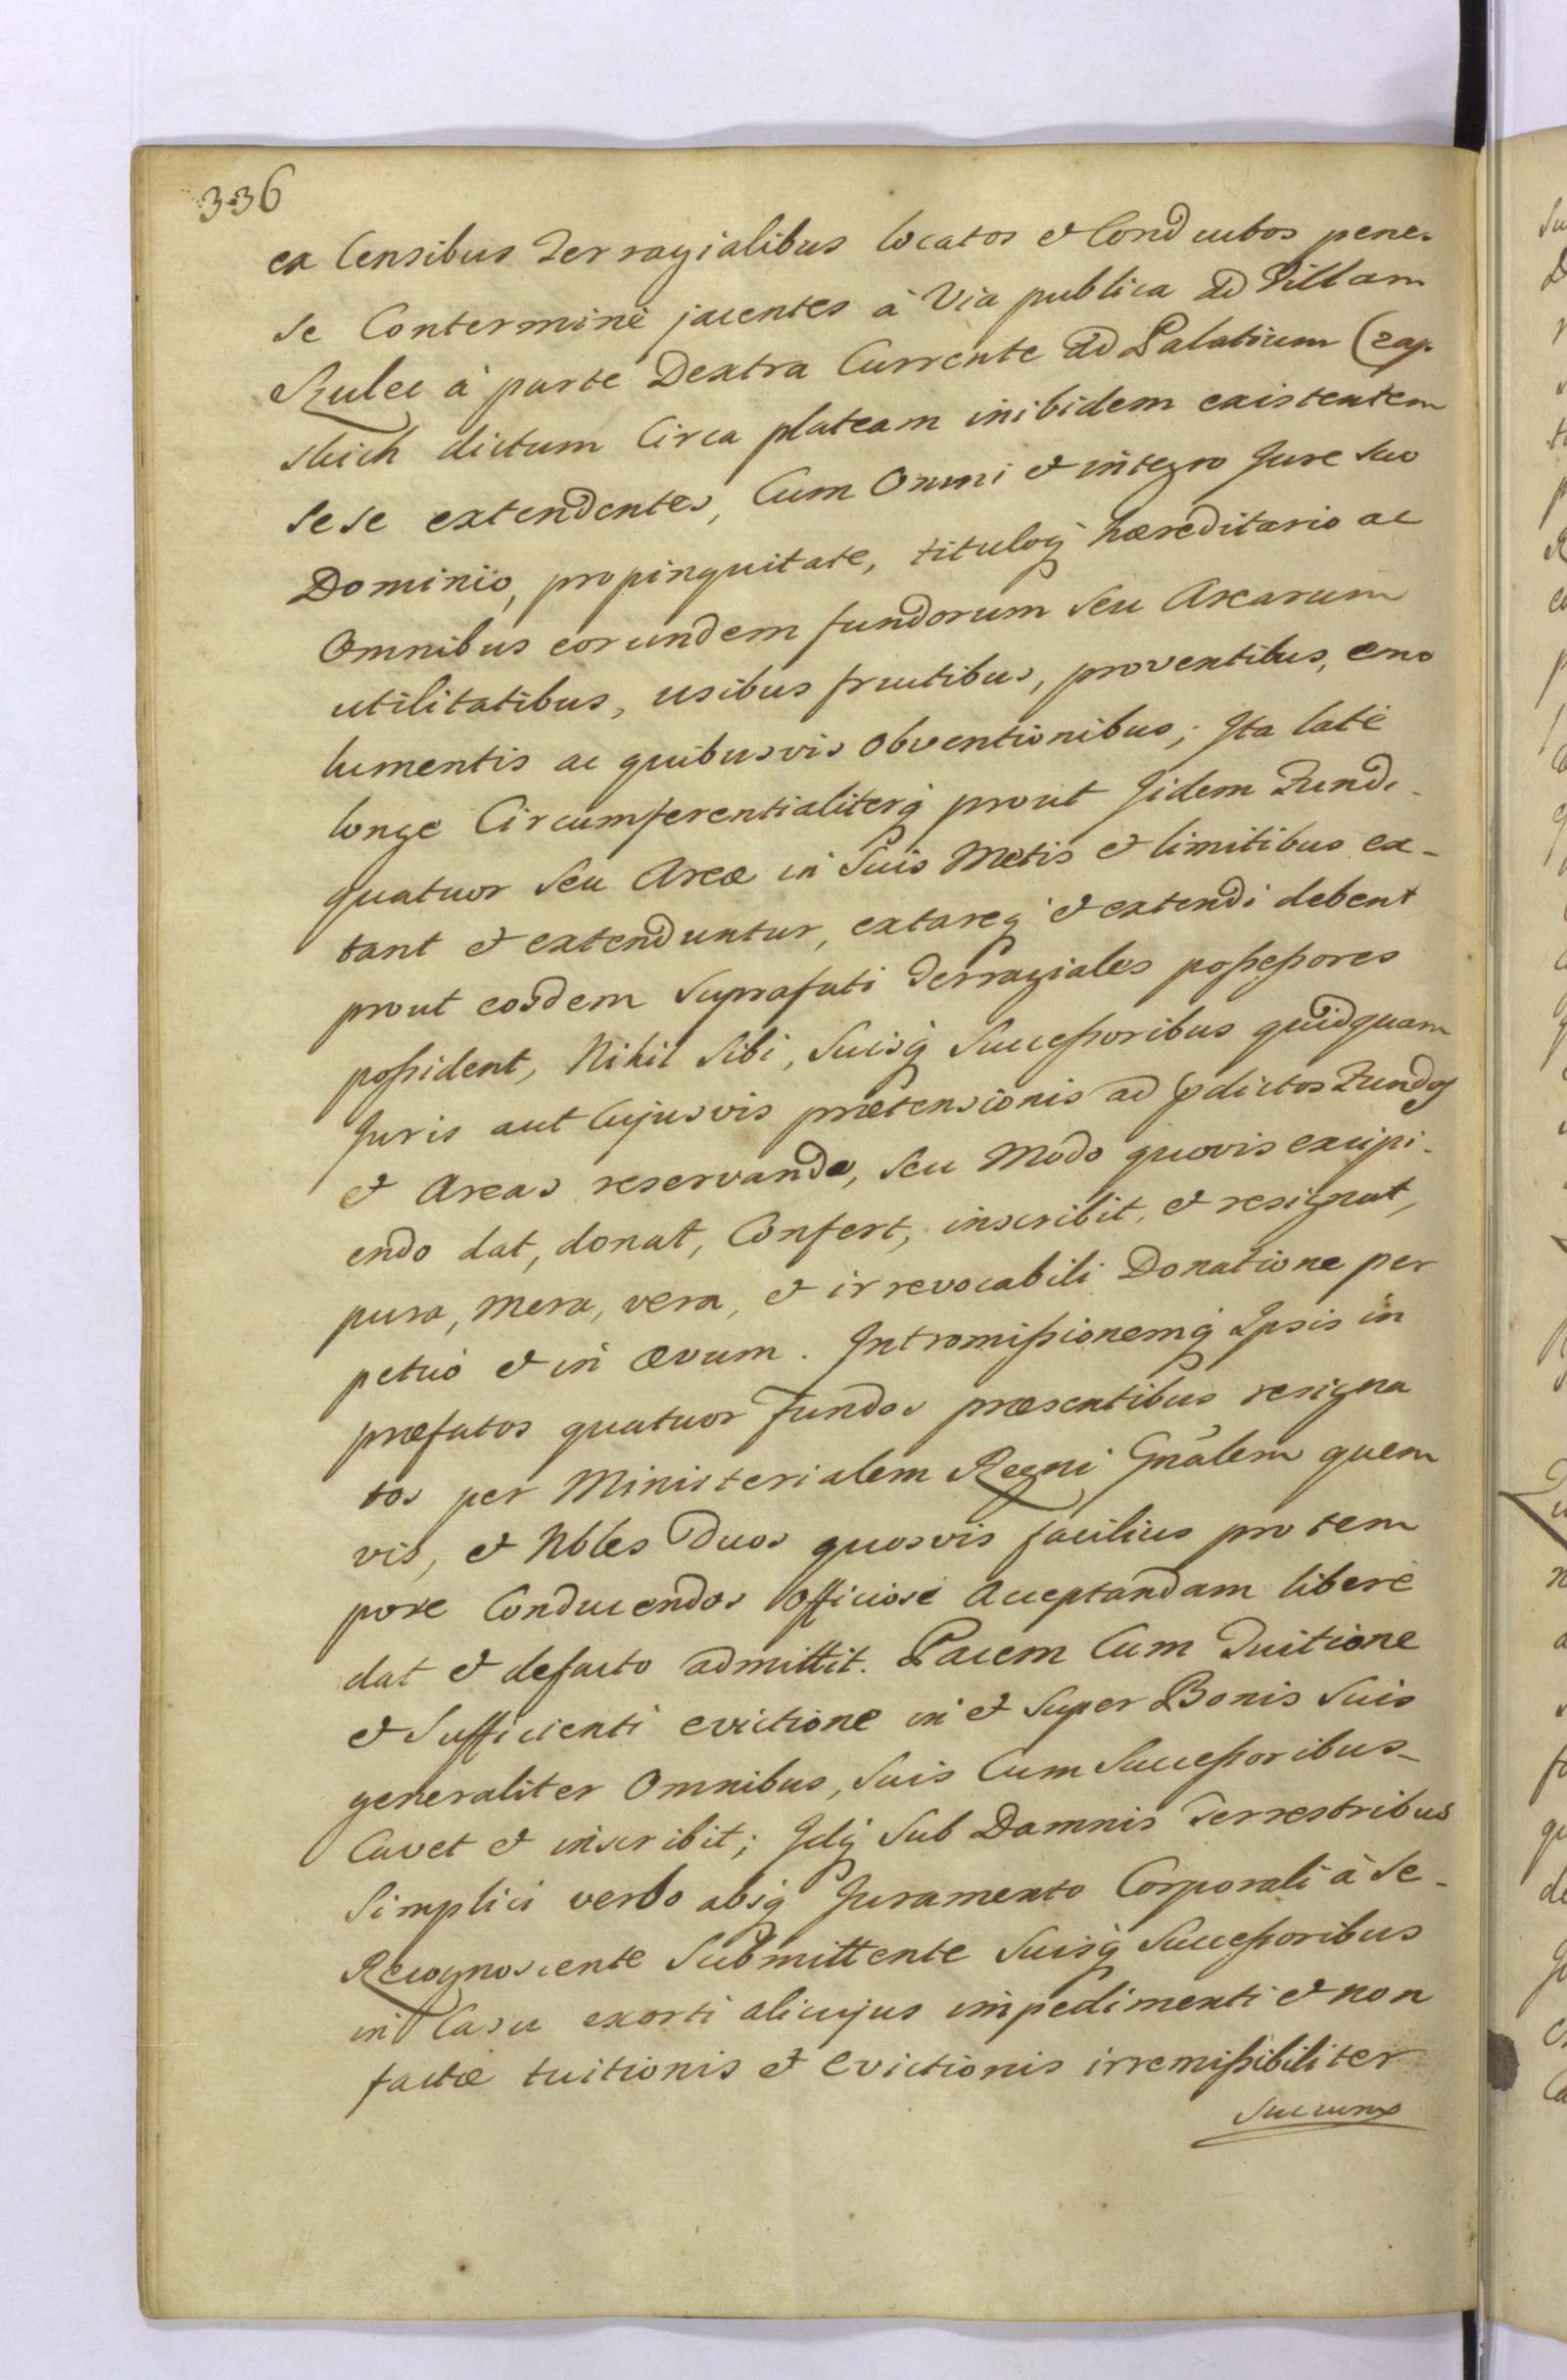 336
ex Censibus Terragialibus locatos et Conductos pene-
se Conterminè jacentes à Via publica ad Villam
Rulec à parte Dextra Currente ad Palatium Czap
skich dictum Circa plateam inibidem existentem
sese extendentes, Cum Omni et integro Jure suo
Dominio, propinquitate, tituloq hæreditario ac
Omnibus eorundem fundorum seu Arearum
utilitatibus, usibus fructibus, proventibus, emo
lumentis ac quibusvis obventionibus; Ita latè
longe Circumferentialiterq prout Iidem Fundi
quatuor seu Areæ in suis Metis et limitibus ex-
tant et extenduntur, extareq et extendi debent
prout eosdem suprafati Terragiales poßeßores
poßident, Nihil sibi, suisq Succeßoribus quidquam
Juris aut Cujusvis prætensionis ad pdictos Fundos
et Areas reservando, seu Modo quovis excipi-
endo dat, donat, Confert, inscribit, et resignat,
pura, mera, vera, et irrevocabili Donatione per
petuò et in ævum. Intromißionemq Ipsis in
præfatos quatuor Fundos præsentibus resigna
tos per Ministerialem Regni Gnālem quem
vis, et Nbles Duos quosvis facilius pro tem
pore Conducendos officiosè acceptandam liberè
dat et defacto admittit. Pacem Cum Tuitione
et Sufficienti evictione in et super Bonis Suis
generaliter Omnibus, suis Cum Succeßoribus
Cavet et inscribit; Idq sub Damnis Terrestribus
Simplici verbo absq Juramento Corporali à se
Recognoscente Submittente suisq Succeßoribus
in Casu exorti alicujus impedimenti et non
factæ tuitionis et evictionis irremißibiliter